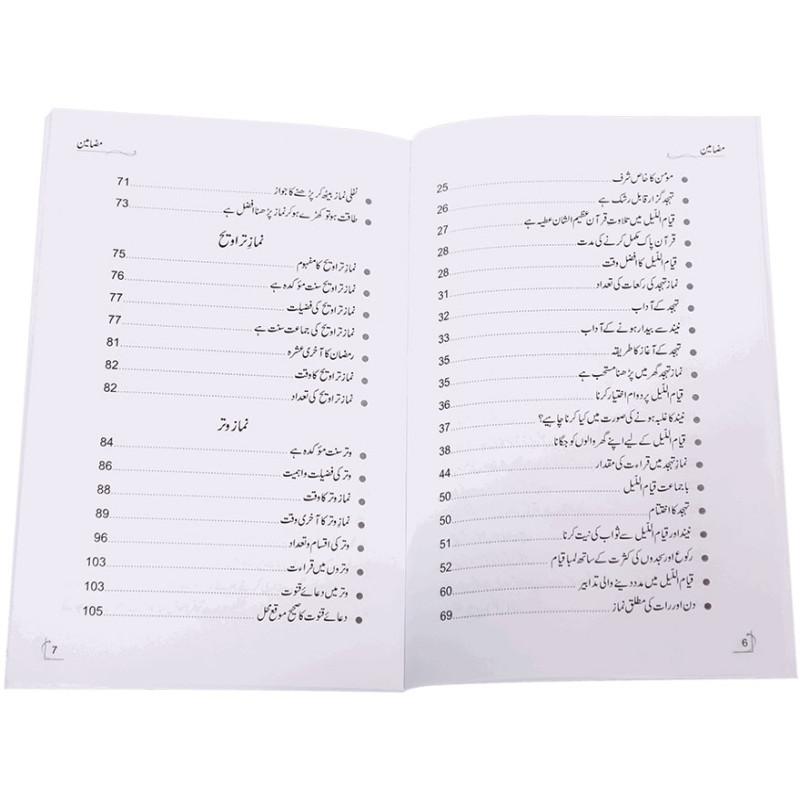 مضامین
مومن کا خاص شرف 25
تہجد گزار قابل رشک ہے 26
قیام اللیل میں تلاوتِ قرآن عظیم الشان عطیہ ہے 27
قرآن پاک مکمل کرنے کی مدت 28
قیام اللیل کا افضل وقت 28
نماز تہجد کی رکعات کی تعداد 31
تہجد کے آداب 32
نیند سے بیدار ہونے کے آداب 33
تہجد کے آغاز کا طریقہ 35
نماز تہجد گھر میں پڑھنا مستحب ہے 35
قیام اللیل پر دوام اختیار کرنا 36
نیند کا غلبہ ہونے کی صورت میں کیا کرنا چاہیے؟ 37
قیام اللیل کے لیے اپنے گھر والوں کو جگانا 38
نماز تہجد میں قراءت کی مقدار 44
با جماعت قیام اللیل 50
تہجد کا اختتام 50
نیند اور قیام اللیل سے ثواب کی نیت کرنا 51
رکوع اور سجدوں کی کثرت کے ساتھ لمبا قیام 52
قیام اللیل میں مدد دینے والی تدابیر 60
دن اور رات کی مطلق نماز 69
6
مضامین
نفلی نماز بیٹھ کر پڑھنے کا جواز 71
طاقت ہو تو کھڑے ہو کر نماز پڑھنا افضل ہے 73
نمازِ تراویح
نماز تراویح کا مفہوم 75
نماز تراویح سنت مؤکدہ ہے 76
نماز تراویح کی فضیلت 77
نماز تراویح کی جماعت سنت ہے 77
رمضان کا آخری عشرہ 81
نماز تراویح کا وقت 82
نماز تراویح کی تعداد 82
نمازِ وتر
وتر سنت مؤکدہ ہے 84
وتر کی فضیلت و اہمیت 86
نماز وتر کا وقت 88
نماز وتر کا آخری وقت 89
وتر کی اقسام و تعداد 96
وتروں میں قراءت 103
وتر میں دعائے قنوت 103
دعائے قنوت کا صحیح موقع محل 105
7